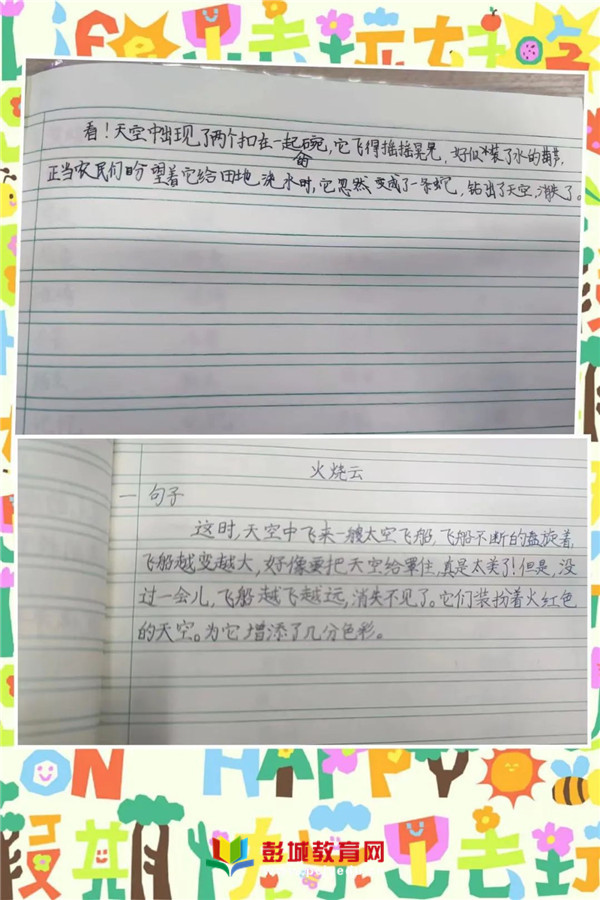 看！天空中出现了两个扣在一起的碗,它飞得摇摇晃晃,好似装了水的葫芦,
正当农民们盼望着它给田地浇水时,它忽然变成了一条蛇,钻出了天空,消失了。
火烧云
一 句子
这时,天空中飞来一艘太空飞船,飞船不断的盘旋着,
飞船越变越大,好像要把天空给罩住,真是太美了!但是,没
过一会儿,飞船越飞越远,消失不见了。它们装扮着火红色
的天空。为它增添了几分色彩。
ON HAPPY
彭城教育网